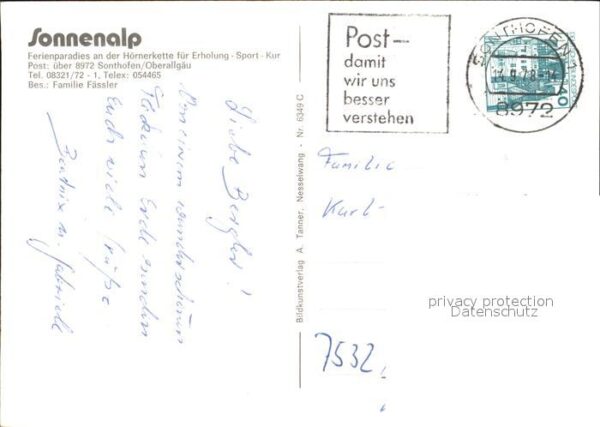 Sonnenalp
Ferienparadies an der Hörnerkette für Erholung · Sport · Kur
Post: über 8972 Sonthofen/Oberallgäu
Tel. 08321/72 - 1, Telex: 054465
Bes.: Familie Fässler
Liebe
Von einem wunderschönen
Ende senden
Euch viele Grüße
u. Gabriele
Bildkunstverlag A. Tanner, Nesselwang - Nr. 6349 C
Post –
damit
wir uns
besser
verstehen
SONTHOFEN 1
14.9.78
8972
40
Familie
Kurt
7532
privacy protection
Datenschutz